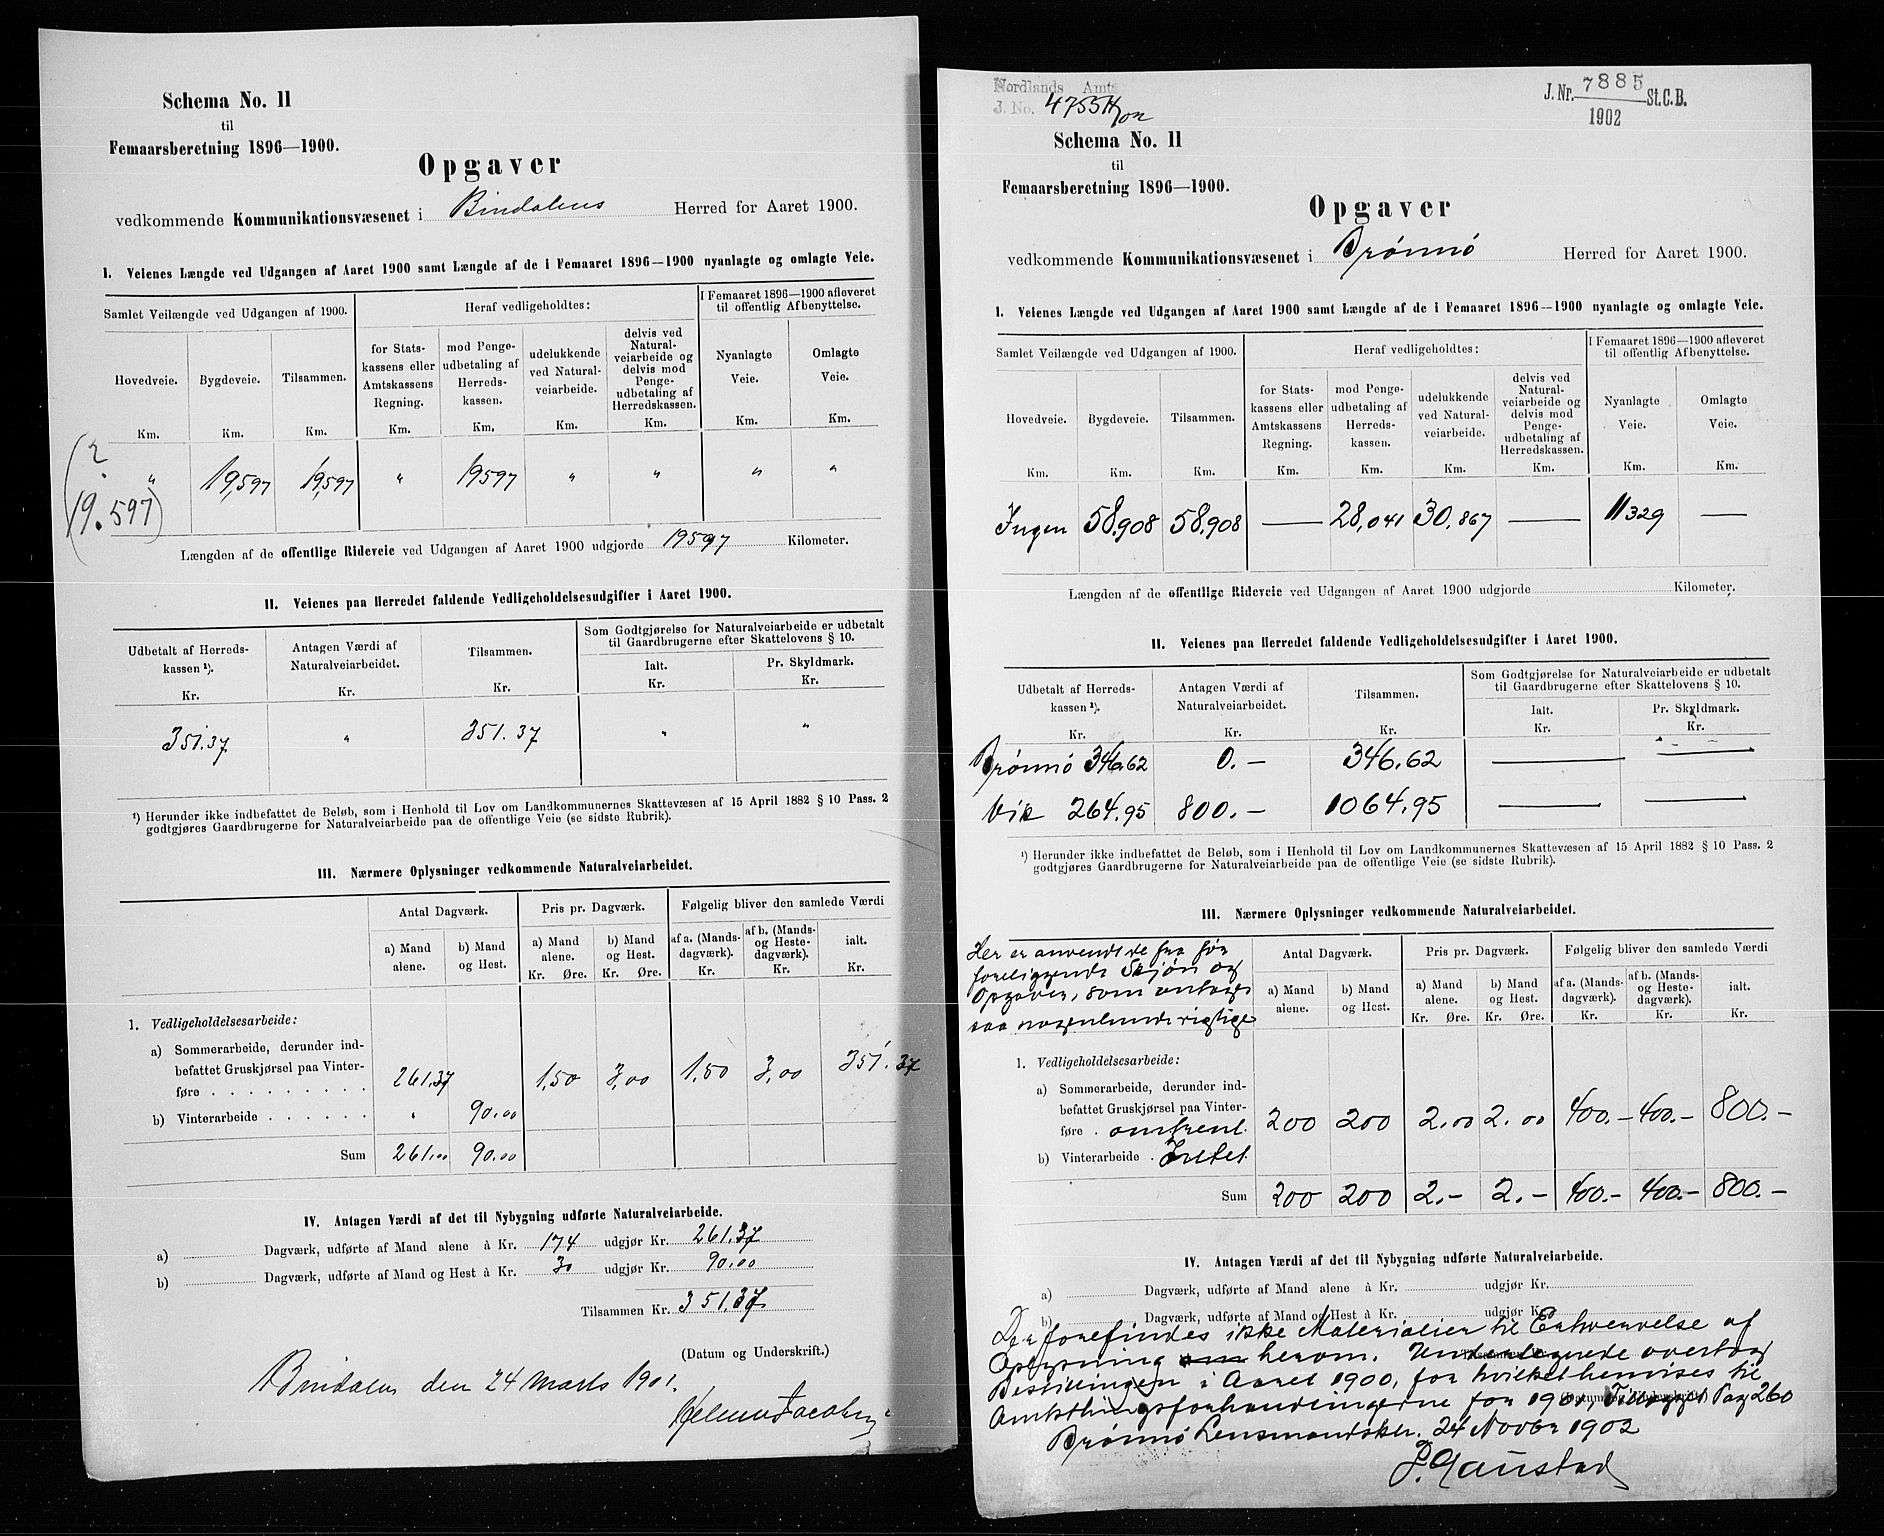 Schema No. 11
til
Femaarsberetning 1896—1900.
Opgaver
vedkommende Kommunikationsvæsenet i Bindalens Herred for Aaret 1900.
I. Veienes Længde ved Udgangen af Aaret 1900 samt Længde af de i Femaaret 1896—1900 nyanlagte og omlagte Veie.
Samlet Veilængde ved Udgangen af 1900.
Heraf vedligeholdtes:
I Femaaret 1896—1900 afleveret til offentlig Afbenyttelse.
Hovedveie. Km.
Bygdeveie. Km.
Tilsammen. Km.
for Stats-
kassens eller
Amtskassens
Regning.
Km.
mod Penge-
udbetaling af
Herreds-
kassen.
Km.
udelukkende
ved Natural-
veiarbeide.
Km.
delvis ved
Natural-
veiarbeide og
delvis mod
Penge-
udbetaling af
Herredskassen.
Km.
Nyanlagte
Veie.
Km.
Omlagte
Veie.
Km.
(? 19.597)
" 19,597 19,597 " 19597 " " " "
Længden af de offentlige Rideveie ved Udgangen af Aaret 1900 udgjorde 19597 Kilometer.
II. Veienes paa Herredet faldende Vedligeholdelsesudgifter i Aaret 1900.
Udbetalt af Herreds-
kassen ¹).
Kr.
Antagen Værdi af
Naturalveiarbeidet.
Kr.
Tilsammen.
Kr.
Som Godtgjørelse for Naturalveiarbeide er udbetalt
til Gaardbrugerne efter Skattelovens § 10.
Ialt.
Kr.
Pr. Skyldmark.
Kr.
351.37 " 351.37 " "
¹) Herunder ikke indbefattet de Beløb, som i Henhold til Lov om Landkommunernes Skattevæsen af 15 April 1882 § 10 Pass. 2
godtgjøres Gaardbrugerne for Naturalveiarbeide paa de offentlige Veie (se sidste Rubrik).
III. Nærmere Oplysninger vedkommende Naturalveiarbeidet.
Antal Dagværk.
Pris pr. Dagværk.
Følgelig bliver den samlede Værdi
a) Mand
alene.
b) Mand
og Hest.
a) Mand
alene.
Kr. Øre.
b) Mand
og Hest.
Kr. Øre.
af a. (Mands-
dagværk).
Kr.
af b. (Mands-
og Heste-
dagværk).
Kr.
ialt.
Kr.
1. Vedligeholdelsesarbeide:
a) Sommerarbeide, derunder ind-
befattet Gruskjørsel paa Vinter-
føre . . . . . . . . 261.37 1,50 3,00 1,50 3,00 351.37
b) Vinterarbeide . . . . . . " 90.00
Sum 261.00 90.00
IV. Antagen Værdi af det til Nybygning udførte Naturalveiarbeide.
a) Dagværk, udførte af Mand alene à Kr. 174 udgjør Kr. 261.37
b) Dagværk, udførte af Mand og Hest à Kr. 30 udgjør Kr. 90.00
Tilsammen Kr. 351.37
(Datum og Underskrift.)
Bindalen den 24 Marts 1901.
Nordlands Amt
J. No. 4755
J. Nr. 7885 St.C.B.
1902
Schema No. 11
til
Femaarsberetning 1896—1900.
Opgaver
vedkommende Kommunikationsvæsenet i Brønnø Herred for Aaret 1900.
I. Veienes Længde ved Udgangen af Aaret 1900 samt Længde af de i Femaaret 1896—1900 nyanlagte og omlagte Veie.
Samlet Veilængde ved Udgangen af 1900.
Heraf vedligeholdtes:
I Femaaret 1896—1900 afleveret til offentlig Afbenyttelse.
Hovedveie. Km.
Bygdeveie. Km.
Tilsammen. Km.
for Stats-
kassens eller
Amtskassens
Regning.
Km.
mod Penge-
udbetaling af
Herreds-
kassen.
Km.
udelukkende
ved Natural-
veiarbeide.
Km.
delvis ved
Natural-
veiarbeide og
delvis mod
Penge-
udbetaling af
Herredskassen.
Km.
Nyanlagte
Veie.
Km.
Omlagte
Veie.
Km.
Ingen 58,908 58,908 — 28,041 30,867 — 11 329 —
Længden af de offentlige Rideveie ved Udgangen af Aaret 1900 udgjorde Kilometer.
II. Veienes paa Herredet faldende Vedligeholdelsesudgifter i Aaret 1900.
Udbetalt af Herreds-
kassen ¹).
Kr.
Antagen Værdi af
Naturalveiarbeidet.
Kr.
Tilsammen.
Kr.
Som Godtgjørelse for Naturalveiarbeide er udbetalt
til Gaardbrugerne efter Skattelovens § 10.
Ialt.
Kr.
Pr. Skyldmark.
Kr.
Brønnø 346.62 0.— 346.62 — —
Vik 264.95 800.— 1064.95 — —
¹) Herunder ikke indbefattet de Beløb, som i Henhold til Lov om Landkommunernes Skattevæsen af 15 April 1882 § 10 Pass. 2
godtgjøres Gaardbrugerne for Naturalveiarbeide paa de offentlige Veie (se sidste Rubrik).
III. Nærmere Oplysninger vedkommende Naturalveiarbeidet.
Her er anvendt de fra før
foreliggende Skjøn og
Opgaver, som antages
saa nogenlunde rigtige
Antal Dagværk.
Pris pr. Dagværk.
Følgelig bliver den samlede Værdi
a) Mand
alene.
b) Mand
og Hest.
a) Mand
alene.
Kr. Øre.
b) Mand
og Hest.
Kr. Øre.
af a. (Mands-
dagværk).
Kr.
af b. (Mands-
og Heste-
dagværk).
Kr.
ialt.
Kr.
1. Vedligeholdelsesarbeide:
a) Sommerarbeide, derunder ind-
befattet Gruskjørsel paa Vinter-
føre . omtrent. 200 200 2.00 2.00 400.— 400.— 800.—
b) Vinterarbeide . Intet.
Sum 200 200 2.— 2.— 400.— 400.— 800.—
IV. Antagen Værdi af det til Nybygning udførte Naturalveiarbeide.
a) Dagværk, udførte af Mand alene à Kr. udgjør Kr.
b) Dagværk, udførte af Mand og Hest à Kr. udgjør Kr.
Der forefindes ikke Materialier til Erhvervelse af
Oplysning om herom. Undertegnede overtog
Bestillingen i Aaret 1900, for hvilket henvises til
Amtsthingsforhandlingerne for 1901, Pag 260
(Datum og Underskrift.)
Brønnø Lensmandsktr. 24 Novbr 1902
P. Gaustad